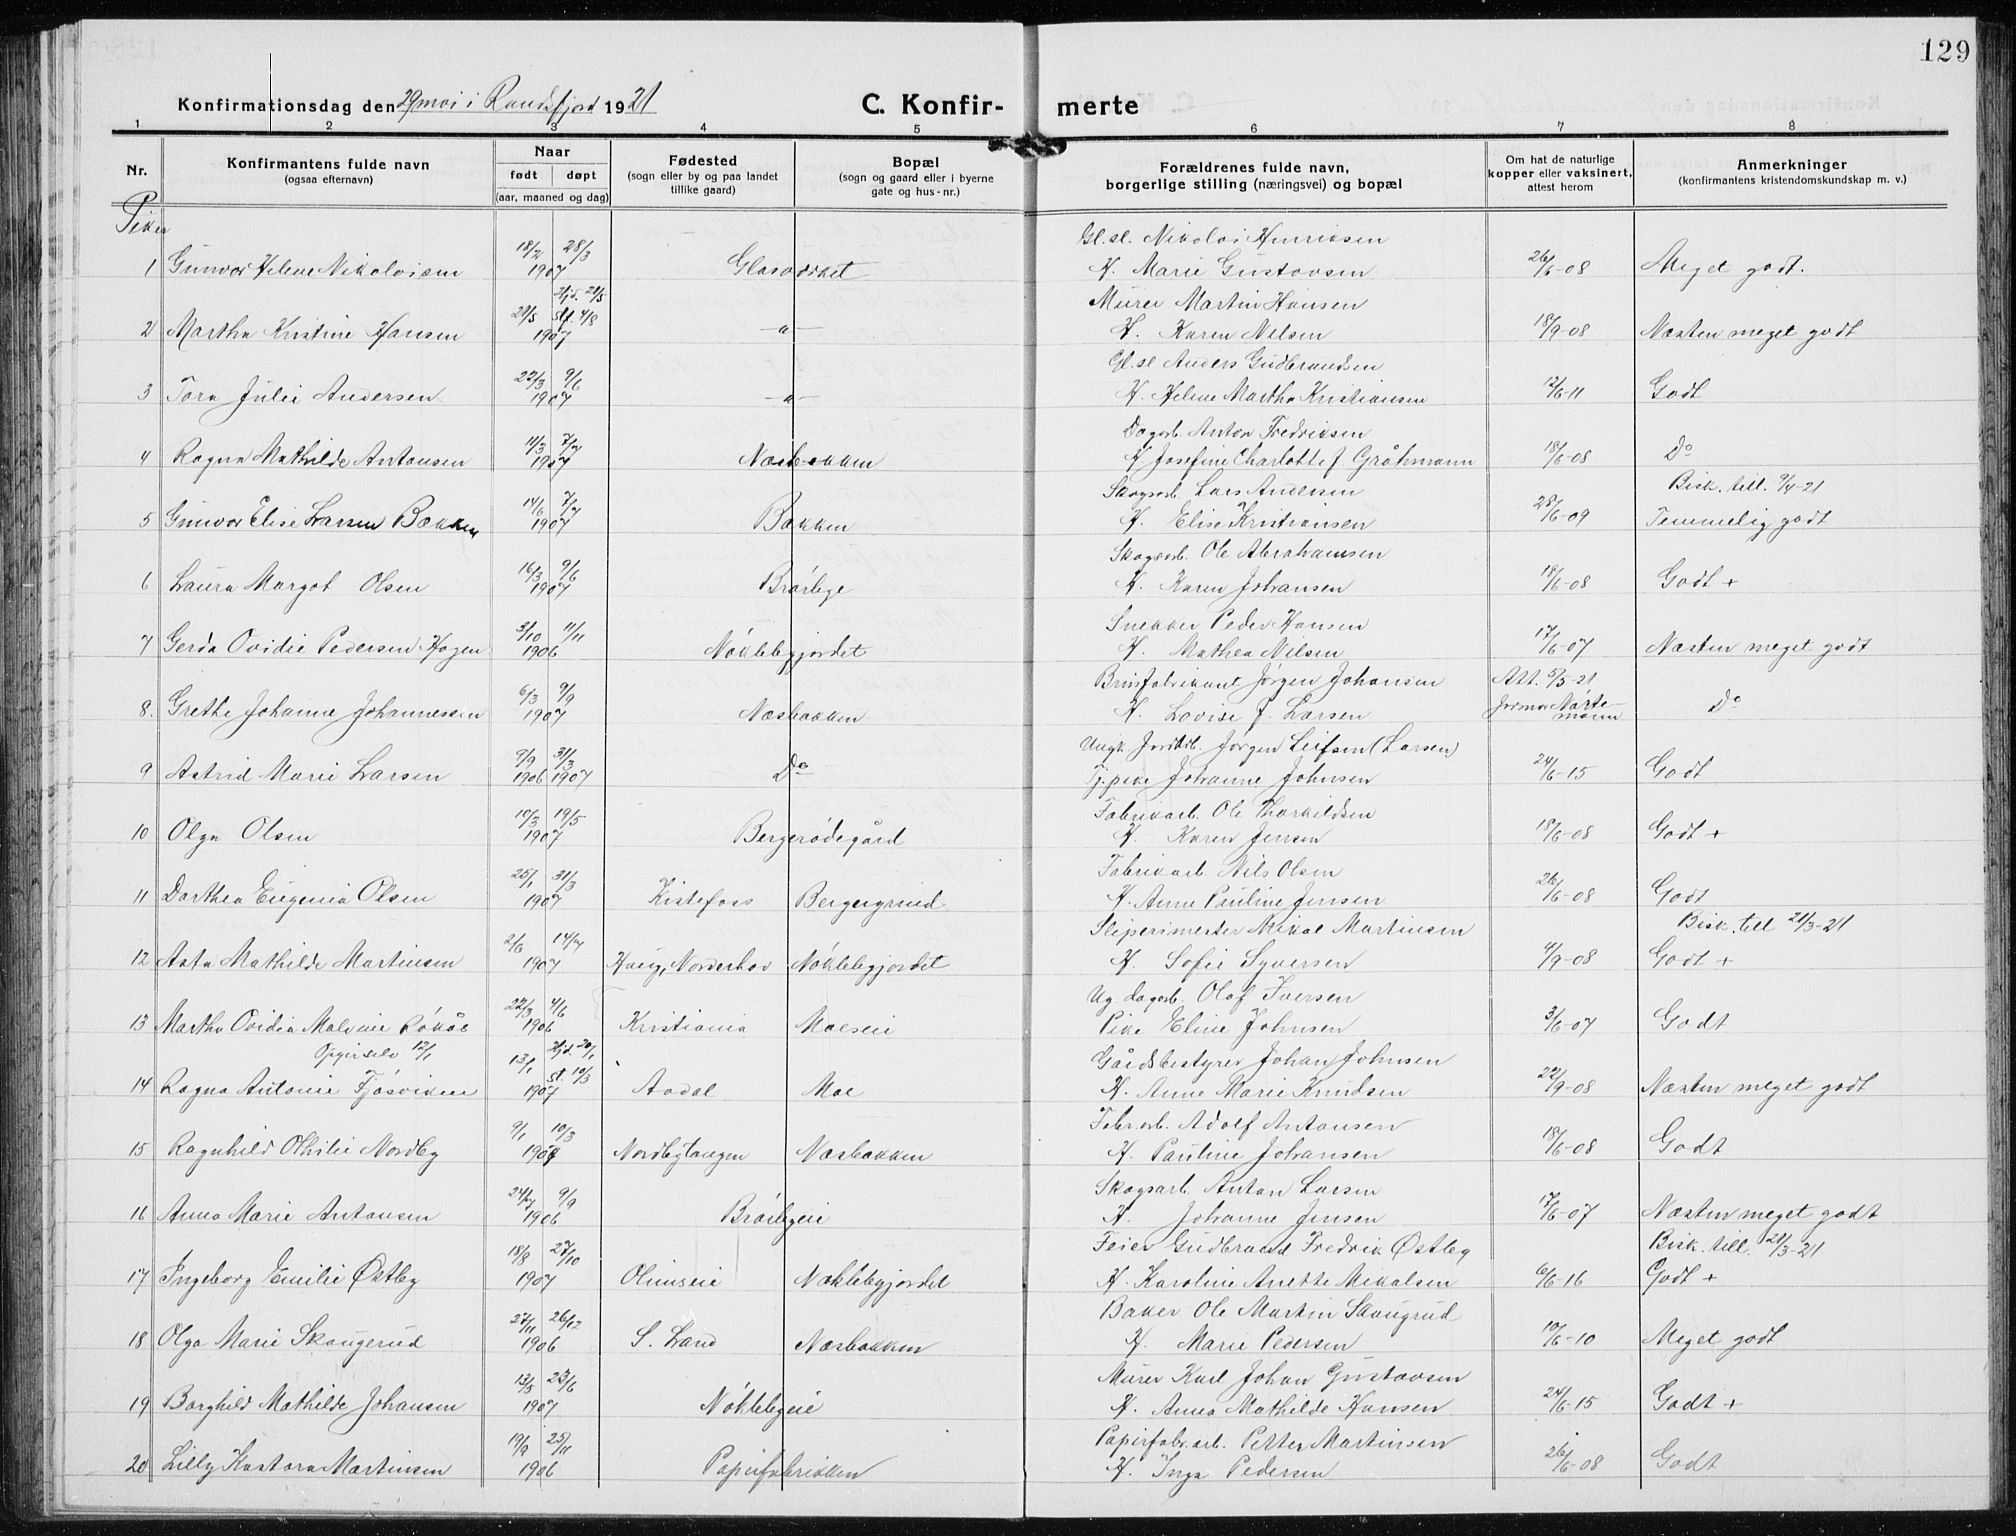 129
Konfirmationsdag den 29 mai i Randsfjord 1921 C. Konfirmerte
1 2 3 4 5 6 7 8
Nr. Konfirmantens fulde navn (ogsaa efternavn) Naar født døpt (aar, maaned og dag) Fødested (sogn eller by og paa landet tillike gaard) Bopæl (sogn og gaard eller i byerne gate og hus-nr.) Forældrenes fulde navn, borgerlige stilling (næringsvei) og bopæl Om hat de naturlige kopper eller vaksinert, attest herom Anmerkninger (konfirmantens kristendomskundskap m. v.)
Piker
Gl.sl. Nikolai Henriksen
1 Gunvor Helene Nikolaisen 18/2 28/3 1907 Glasverket H. Marie Gustavsen 26/6-08 Meget godt.
Murer Martin Hansen
2 Martha Kristine Hansen 21/5 Hjd. 21/5 stf. 4/8 1907 -"- H. Karen Nilsen 18/9-08 Næsten meget godt
Gl.sl Anders Gudbrandsen
3 Tora Julie Andersen 22/3 9/6 1907 -"- H. Helene Martha Kristiansen 12/6-11 Godt
Dagarb. Anton Fredriksen
4 Ragna Mathilde Antonsen 11/3 7/7 1907 Næsbakken H Josefine Charlotte J. Gråhmann 18/6-08 Do
Skogsarb. Lars Andersen Bisk. till. 9/4-21
5 Gunvor Elise Larsen Bakken 14/6 7/7 1907 Bakken H. Elise Kristiansen 28/6-09 Temmelig godt
Skogsarb. Ole Abrahamsen
6 Laura Margot Olsen 16/3 9/6 1907 Bråtlye H. Karen Johansen 18/6-08 Godt +
Snekker Peder Hansen
7 Gerda Ovidie Pedersen Hagen 3/10 11/11 1906 Nøklebygjordet H. Mathea Nilsen 17/6-07 Næsten meget godt
Brusfabrikant Jørgen Johansen Att. 5/5-21
8. Grethe Johanne Johannessen 6/3 9/9 1907 Næsbakken H. Lovise J. Larsen Jormor Nårtemann Do
Ungk. Jordarb. Jørgen Leifsen (Larsen)
9 Astrid Marie Larsen 9/9 1906 31/3 1907 Do Tj.pike Johanne Johnsen 24/6-15 Godt
Fabrikarb. Ole Tharkildsen
10 Olga Olsen 10/3 19/5 1907 Bergerødegård H. Karen Jensen 18/6-08 Godt +
Fabrikarb. Nils Olsen
11 Dorthea Eugenia Olsen 25/1 31/3 1907 Kistefoss Bergergrind H. Anne Pauline Jensen 26/6-08 Godt
Sliperimester Mikal Martinsen Bisk. till 21/3-21
12 Asta Mathilde Martinsen 2/6 14/7 1907 Haug, Norderhov Nøklebygjordet H. Sofie Syversen 4/9-08 Godt +
Ug. dagarb. Olaf Iversen
13 Martha Ovidia Malvine Røkås 22/3 4/6 1906 Kristiania Moeseie Pike Eline Johnsen 3/6-07 Godt
Opgir selv 12/1 Gårdsbestyrer Johan Johnsen
14 Ragna Antonie Fjøsviken 13/1 Hjd. 20/1 st. 10/3 1907 Aadal Moe H. Anne Marie Knudsen 22/9-08 Næsten meget godt
Fabr.arb. Adolf Antonsen
15 Ragnhild Othilie Nordby 9/1 10/3 1907 Nordbytangen Næsbakken H. Pauline Johansen 18/6-08 Godt
Skogsarb. Anton Larsen
16 Anna Marie Antonsen 24/7 9/9 1906 Bråtlyeie H. Johanne Jensen 17/6-07 Næsten meget godt
Feier Gudbrand Fredrik Østby Bisk. till. 21/3-21
17 Ingeborg Emilie Østby 18/8 27/10 1907 Olimseie Nøklebygjordet H. Karoline Anette Mikalsen 6/6-16 Godt +
Baker Ole Martin Skaugrud
18 Olga Marie Skaugerud 27/11 26/12 1906 S. Land Næsbakken H. Marie Pedersen 10/6-10 Meget godt
Murer Karl Johan Gustavsen
19 Borghild Mathilde Johansen 13/5 23/6 1907 Nøklebyeie H. Anna Mathilde Hansen 24/6-15 Godt +
Papirfabr.arb. Petter Martinsen
20 Lilly Kastora Martinsen 19/9 25/11 1906 Papirfabrikken H. Inga Pedersen 26/6-08 Godt